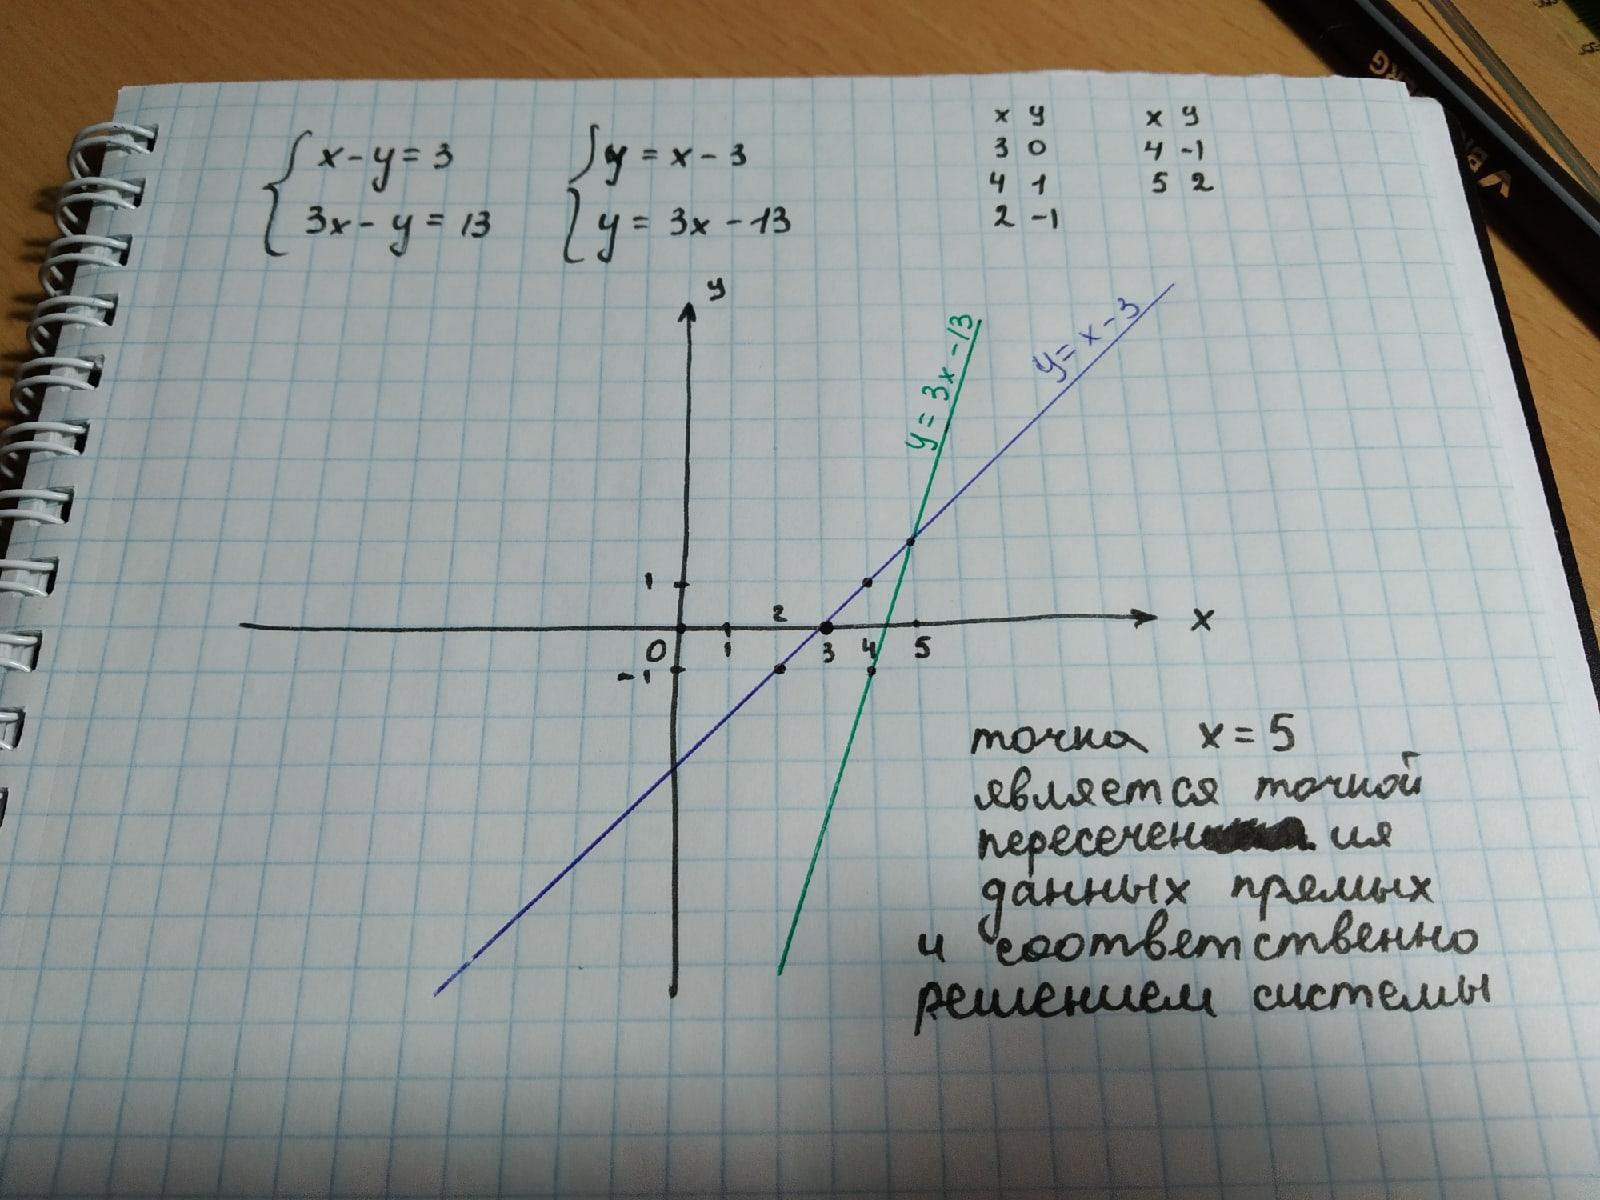 x - y = 3
3x - y = 13
y = x - 3
y = 3x - 13
x y
3 0
4 1
2 -1
x y
4 -1
5 2
y
y = 3x - 13
y = x - 3
1
2
x
0 1 3 4 5
-1
точка x = 5
является точкой
пересечения
данных прямых
и соответственно
решением системы